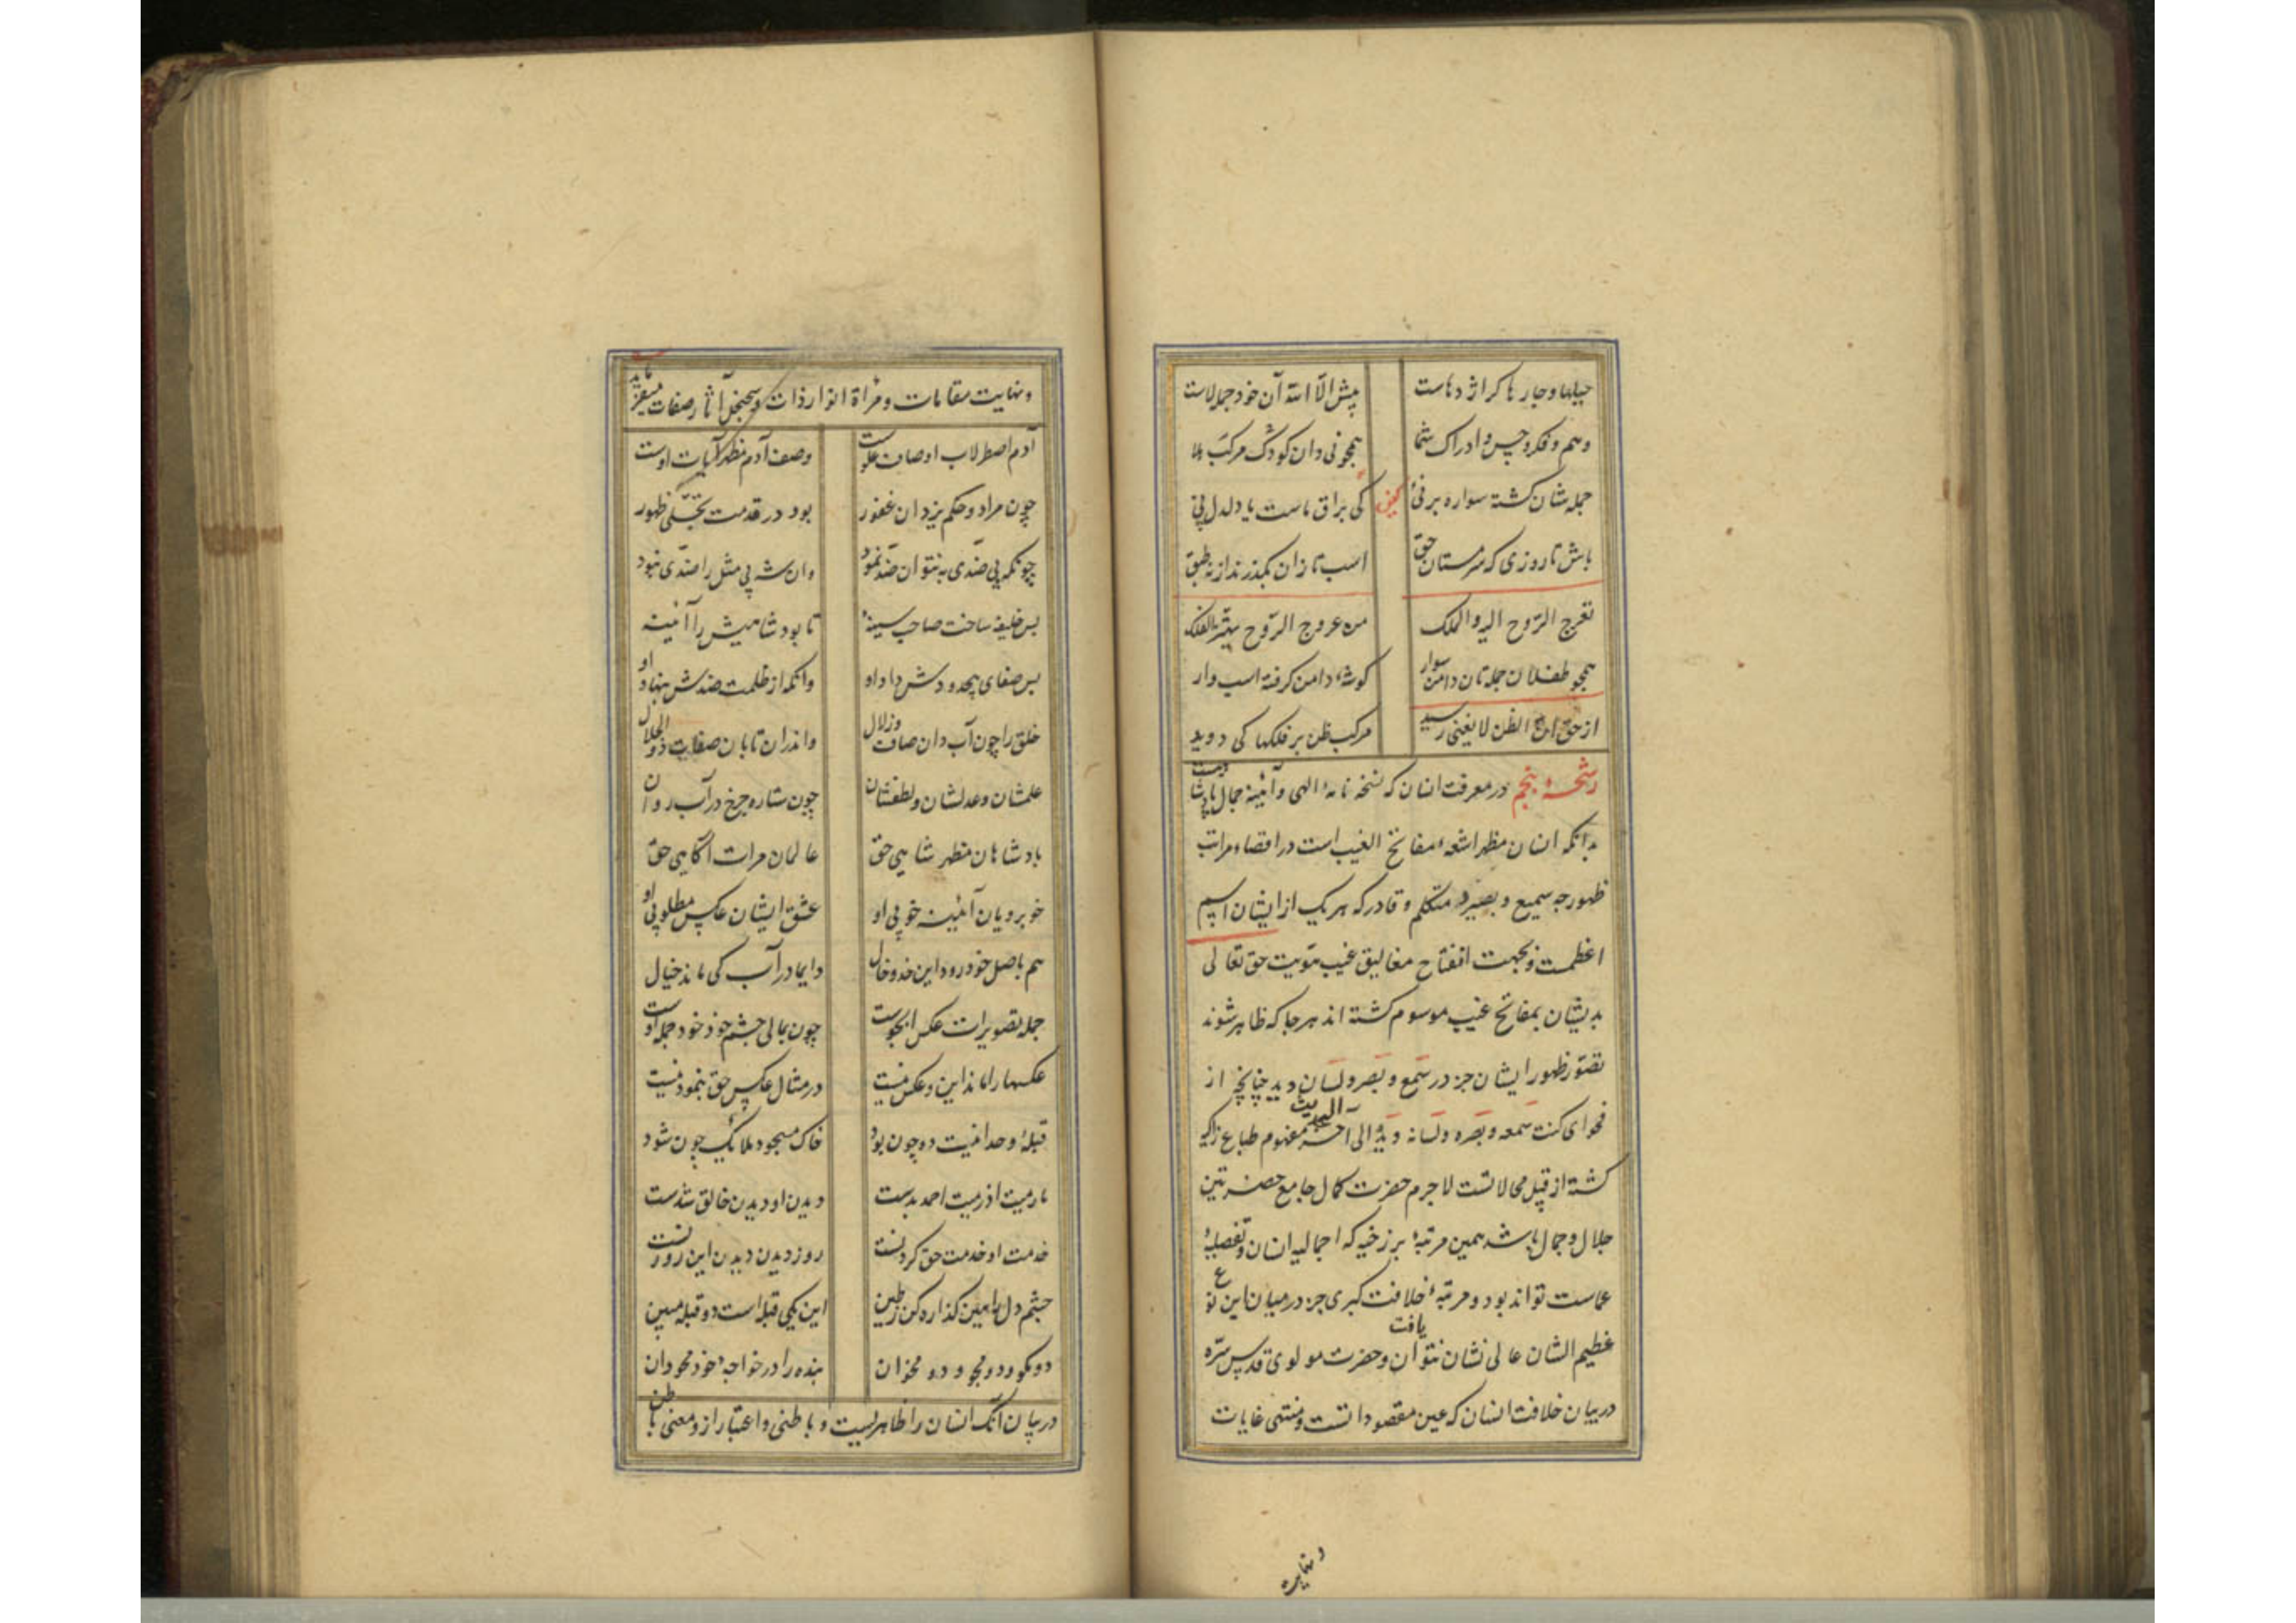 حیلها و چارها کر اژدهاست پیش الا الله آن خود جمله لاست
وهم و فکر و حس و ادراک شما همچو نی دان کودک مرکب هلا
جمله شان کشته سواره بر نی کین کی براق ماست یا دلدل پی
باش تا روزی که سرمستان حق اسب تازان بکذرند از نه طبق
تعرج الروح الیه والملک من عروج الروح یهتز الفلک
همچو طفلان جمله تان دامن سوار کوشهٔ دامن کرفته اسب وار
از حق ان الظن لا یغنی رسید مرکب ظن بر فلکها کی دوید
رشحهٔ پنجم در معرفت انسان که نسخه نامهٔ الهی و آئینه جمال پادشاهیست
بدانکه انسان مظهر اشعهٔ مفاتح الغیب است در اقصاء مراتب
ظهور چه سمیع و بصیر و متکلم و قادر که هر یک از ایشان اسم
اعظمست و بجهت انفتاح مغالیق غیب هویت حق تعالی
بدیشان بمفاتح غیب موسوم کشته اند هر جا که ظاهر شوند
تصور ظهور ایشان جز در سمع و بصر و لسان و ید چنانچه از
فحوای کنت سمعه و بصره و لسانه و یده الی آخر الحدیث مفهوم طباع زاکیه
کشته از قبیل محالاتست لاجرم حضرت کمال جامع حضرتین
جلال و جمال باشد همین مرتبهٔ برزخیه که اجمالیه انسان و تفصیلیهٔ
عماست تواند بود و مرتبهٔ خلافت کبری جز در میان این نوع
عظیم الشان عالی نشان نتوان یافت و حضرت مولوی قدس سره
در بیان خلافت انسان که عین مقصود اتست و منتهی غایات
و نهایت
و نهایت مقامات و مرآة انوار ذات و سجنجل آثار صفات میفرماید
آدم اصطرلاب اوصاف علوست وصف آدم مظهر آیات اوست
چون مراد و حکم یزدان غفور بود در قدمت تجلی ظهور
چونکه بی ضدی به نتوان ضد نمود وان شه بی مثل را ضدی نبود
پس خلیفه ساخت صاحب سینهٔ تا بود شاهیش را آئینه
بس صفای بیحدودش داد او وانکه از ظلمت ضدش بنهاد او
خلق را چون آب دان صاف و زلال واندران تابان صفات ذو الجلال
علمشان و عدلشان و لطفشان چون ستاره چرخ در آب روان
پادشاهان مظهر شاهی حق عالمان مرات آکاهی حق
خوبرویان آئینه خوبی او عشق ایشان عکس مطلوبی او
هم باصل خود رود این خد و خال دایما در آب کی ماند خیال
جمله تصویرات عکس آبجوست چون بمالی چشم خود خود جمله اوست
عکسها را ماند این و عکس نیست در مثال عکس حق بنمودنیست
قبلهٔ وحدانیت دو چون بود خاک مسجود ملائک چون شود
ما رمیت اذ رمیت احمد بدست دیدن او دیدن خالق شدست
خدمت او خدمت حق کردنست روز دیدن دیدن این روزنست
چشم دل را هین کذاره کن ز طین این یکی قبله است دو قبله مبین
دو مکو و دو مجو و دو مخوان بنده را در خواجهٔ خود محو دان
در بیان آنکه انسان را ظاهریست و باطنی و اعتبار از و معنی باطن